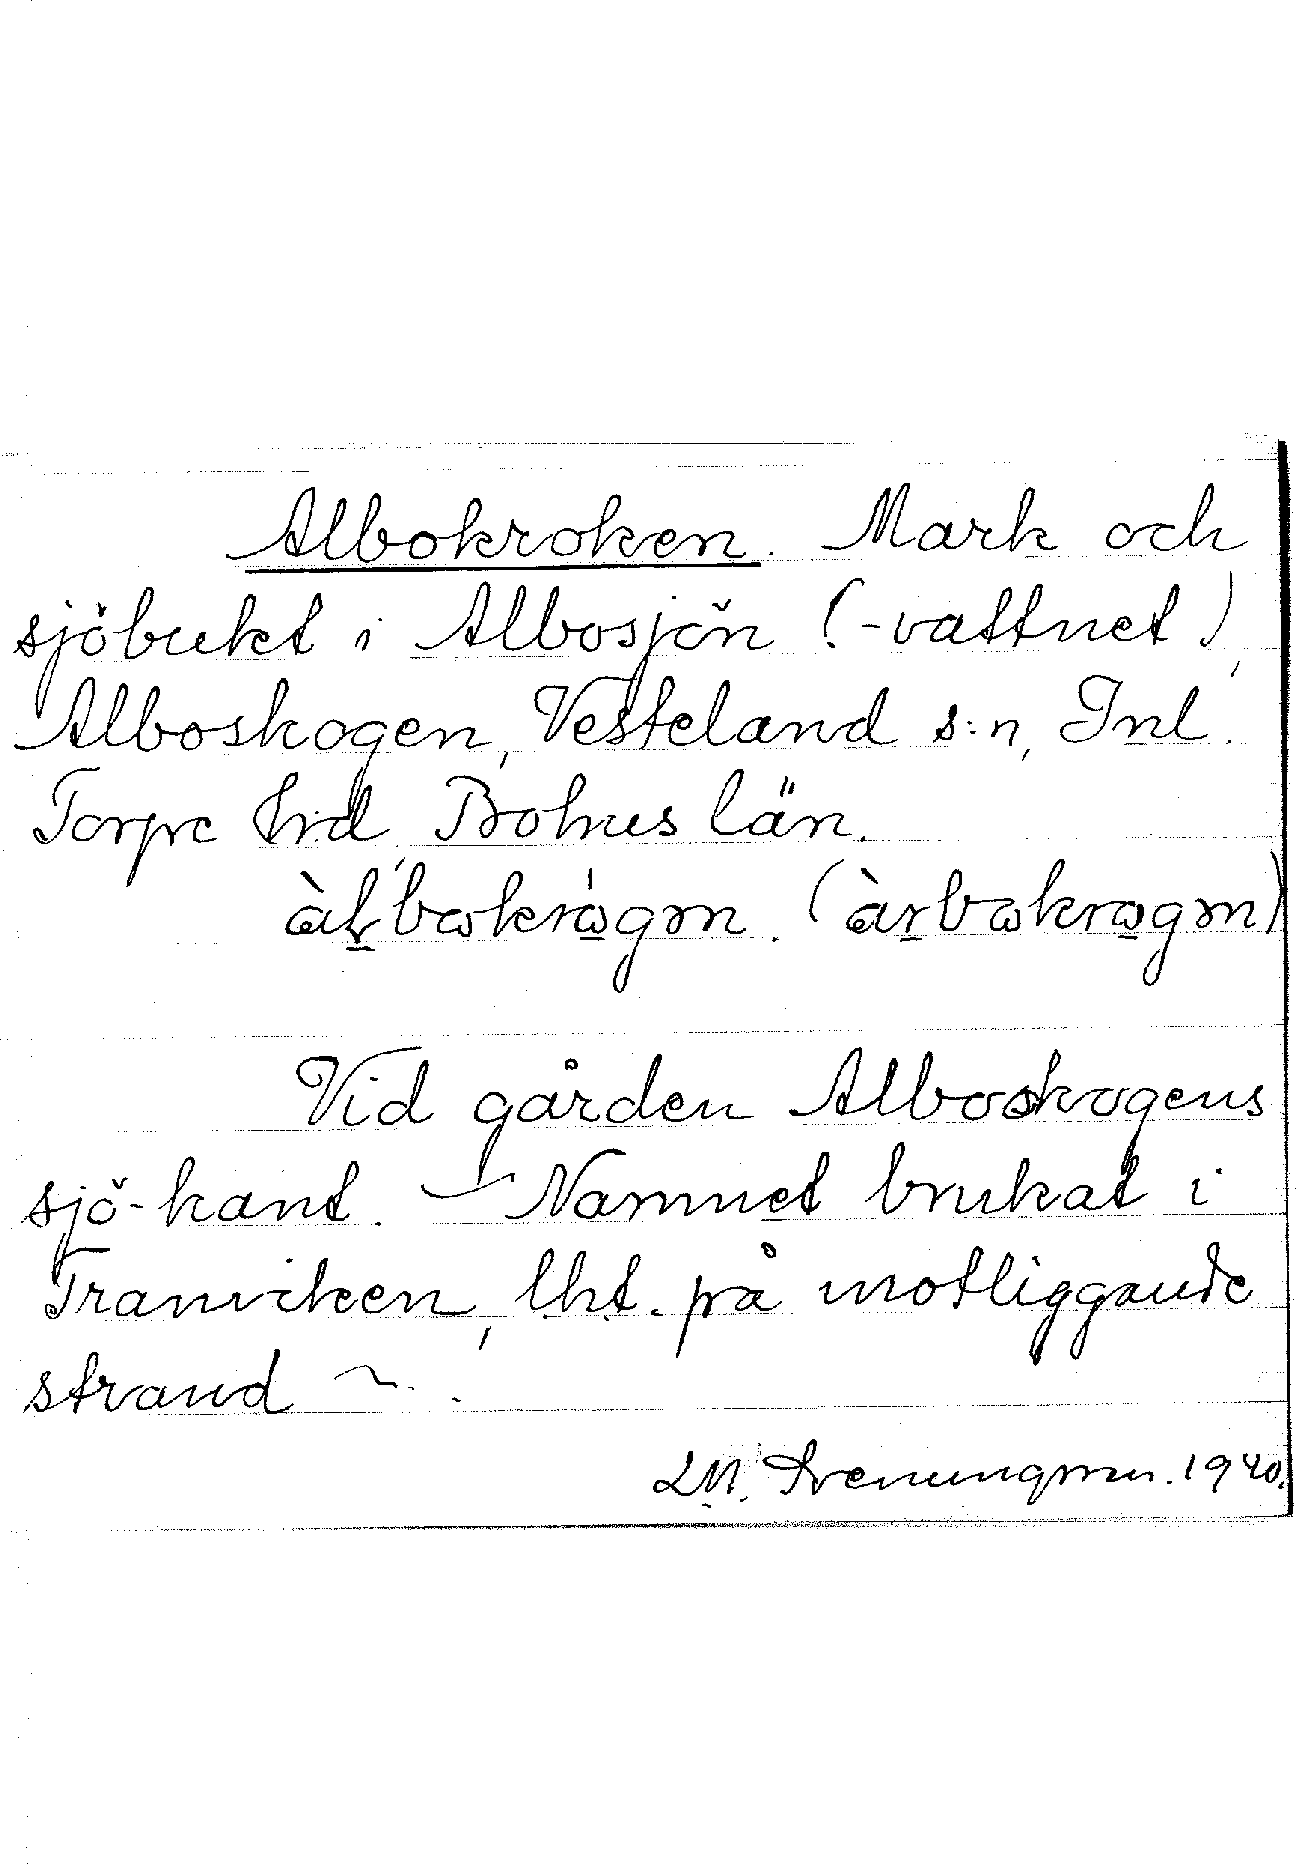 Albokroken. Mark och
sjöbukt i Albosjön (-vattnet),
Alboskogen, Vesteland s:n, Inl.
Torpe hrd, Bohuslän.
Vid gården Alboskogens
sjö-kant. – Namnet brukat i
Tranviken, lht. på motliggande
strand ~.
1940.